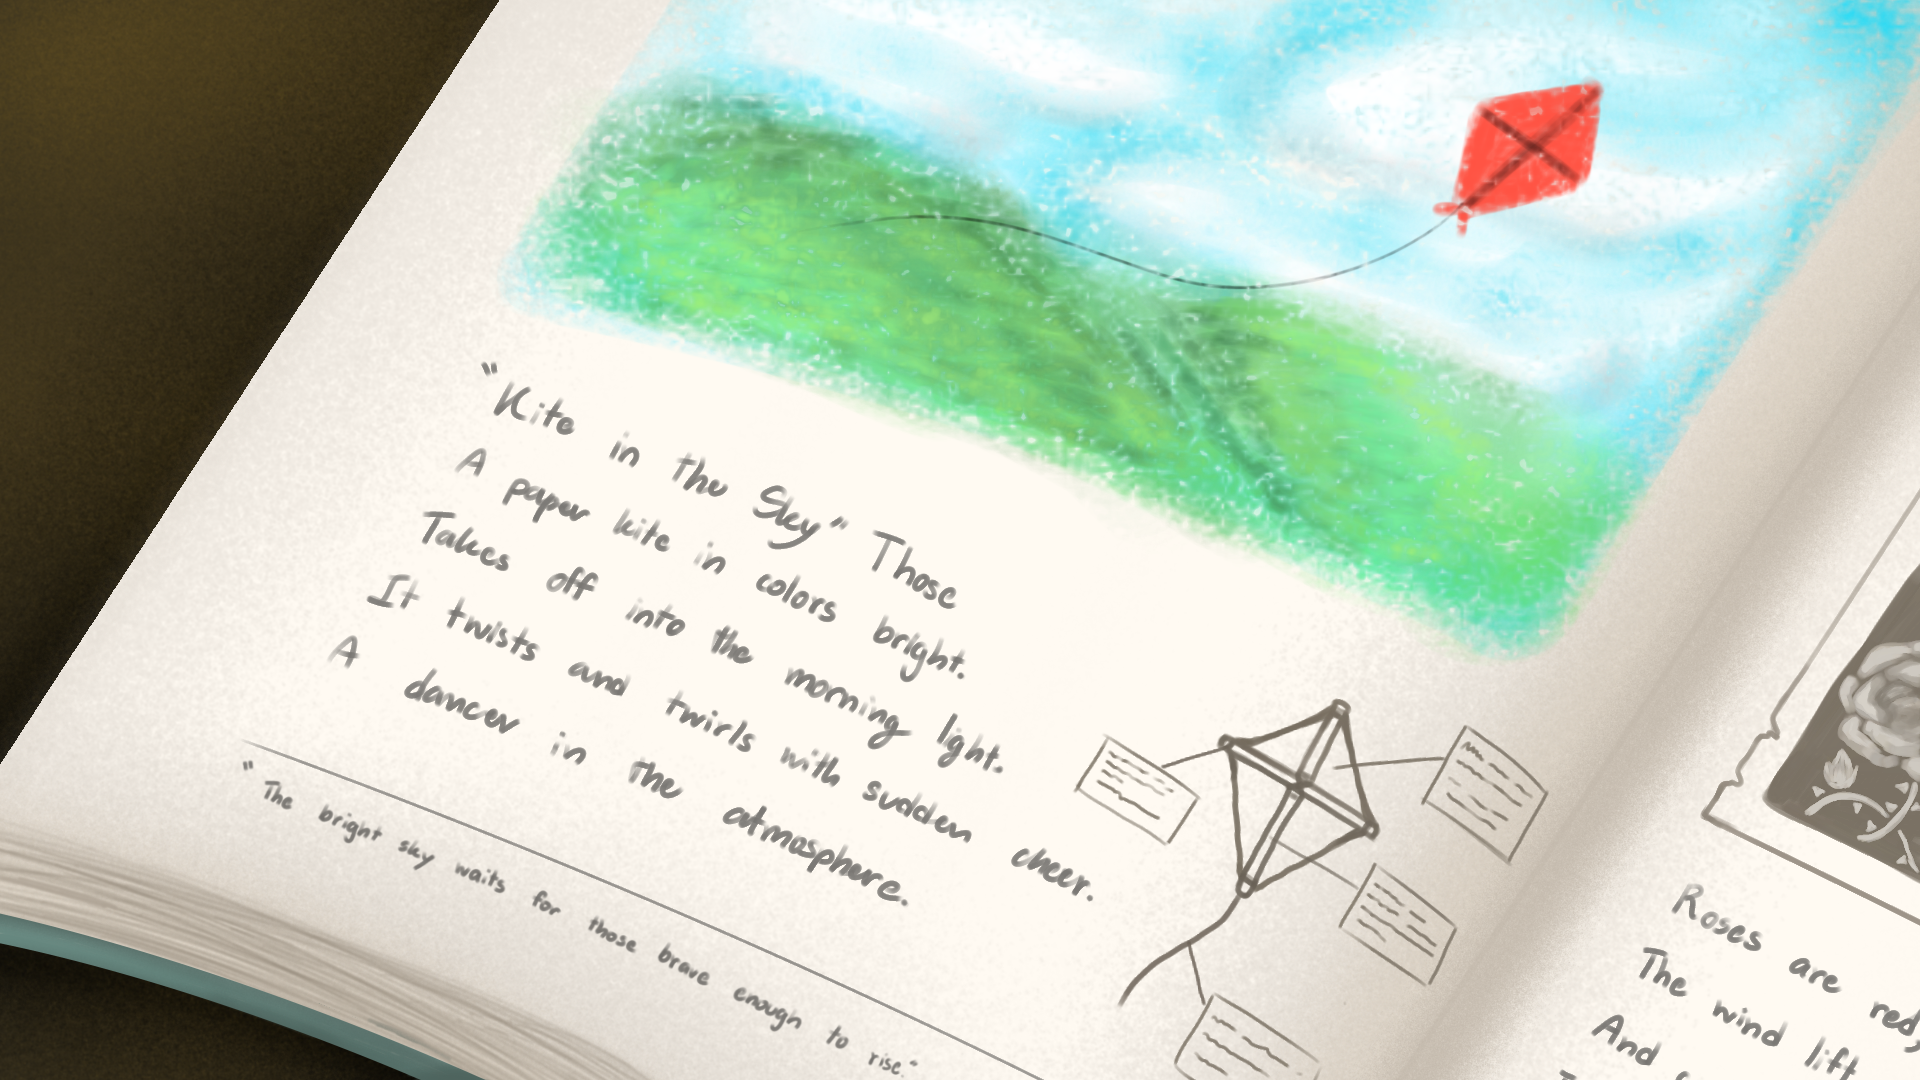 "Kite in the Sky" Those
A paper kite in colors bright.
Takes off into the morning light.
It twists and twirls with sudden cheer.
A dancer in the atmosphere.
"The bright sky waits for those brave enough to rise."
Roses are red,
The wind lift
And